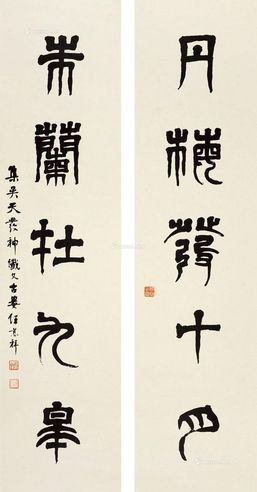 丹梅發十月
朱蘭杜九皋
集吳天發神讖文古婁任祥